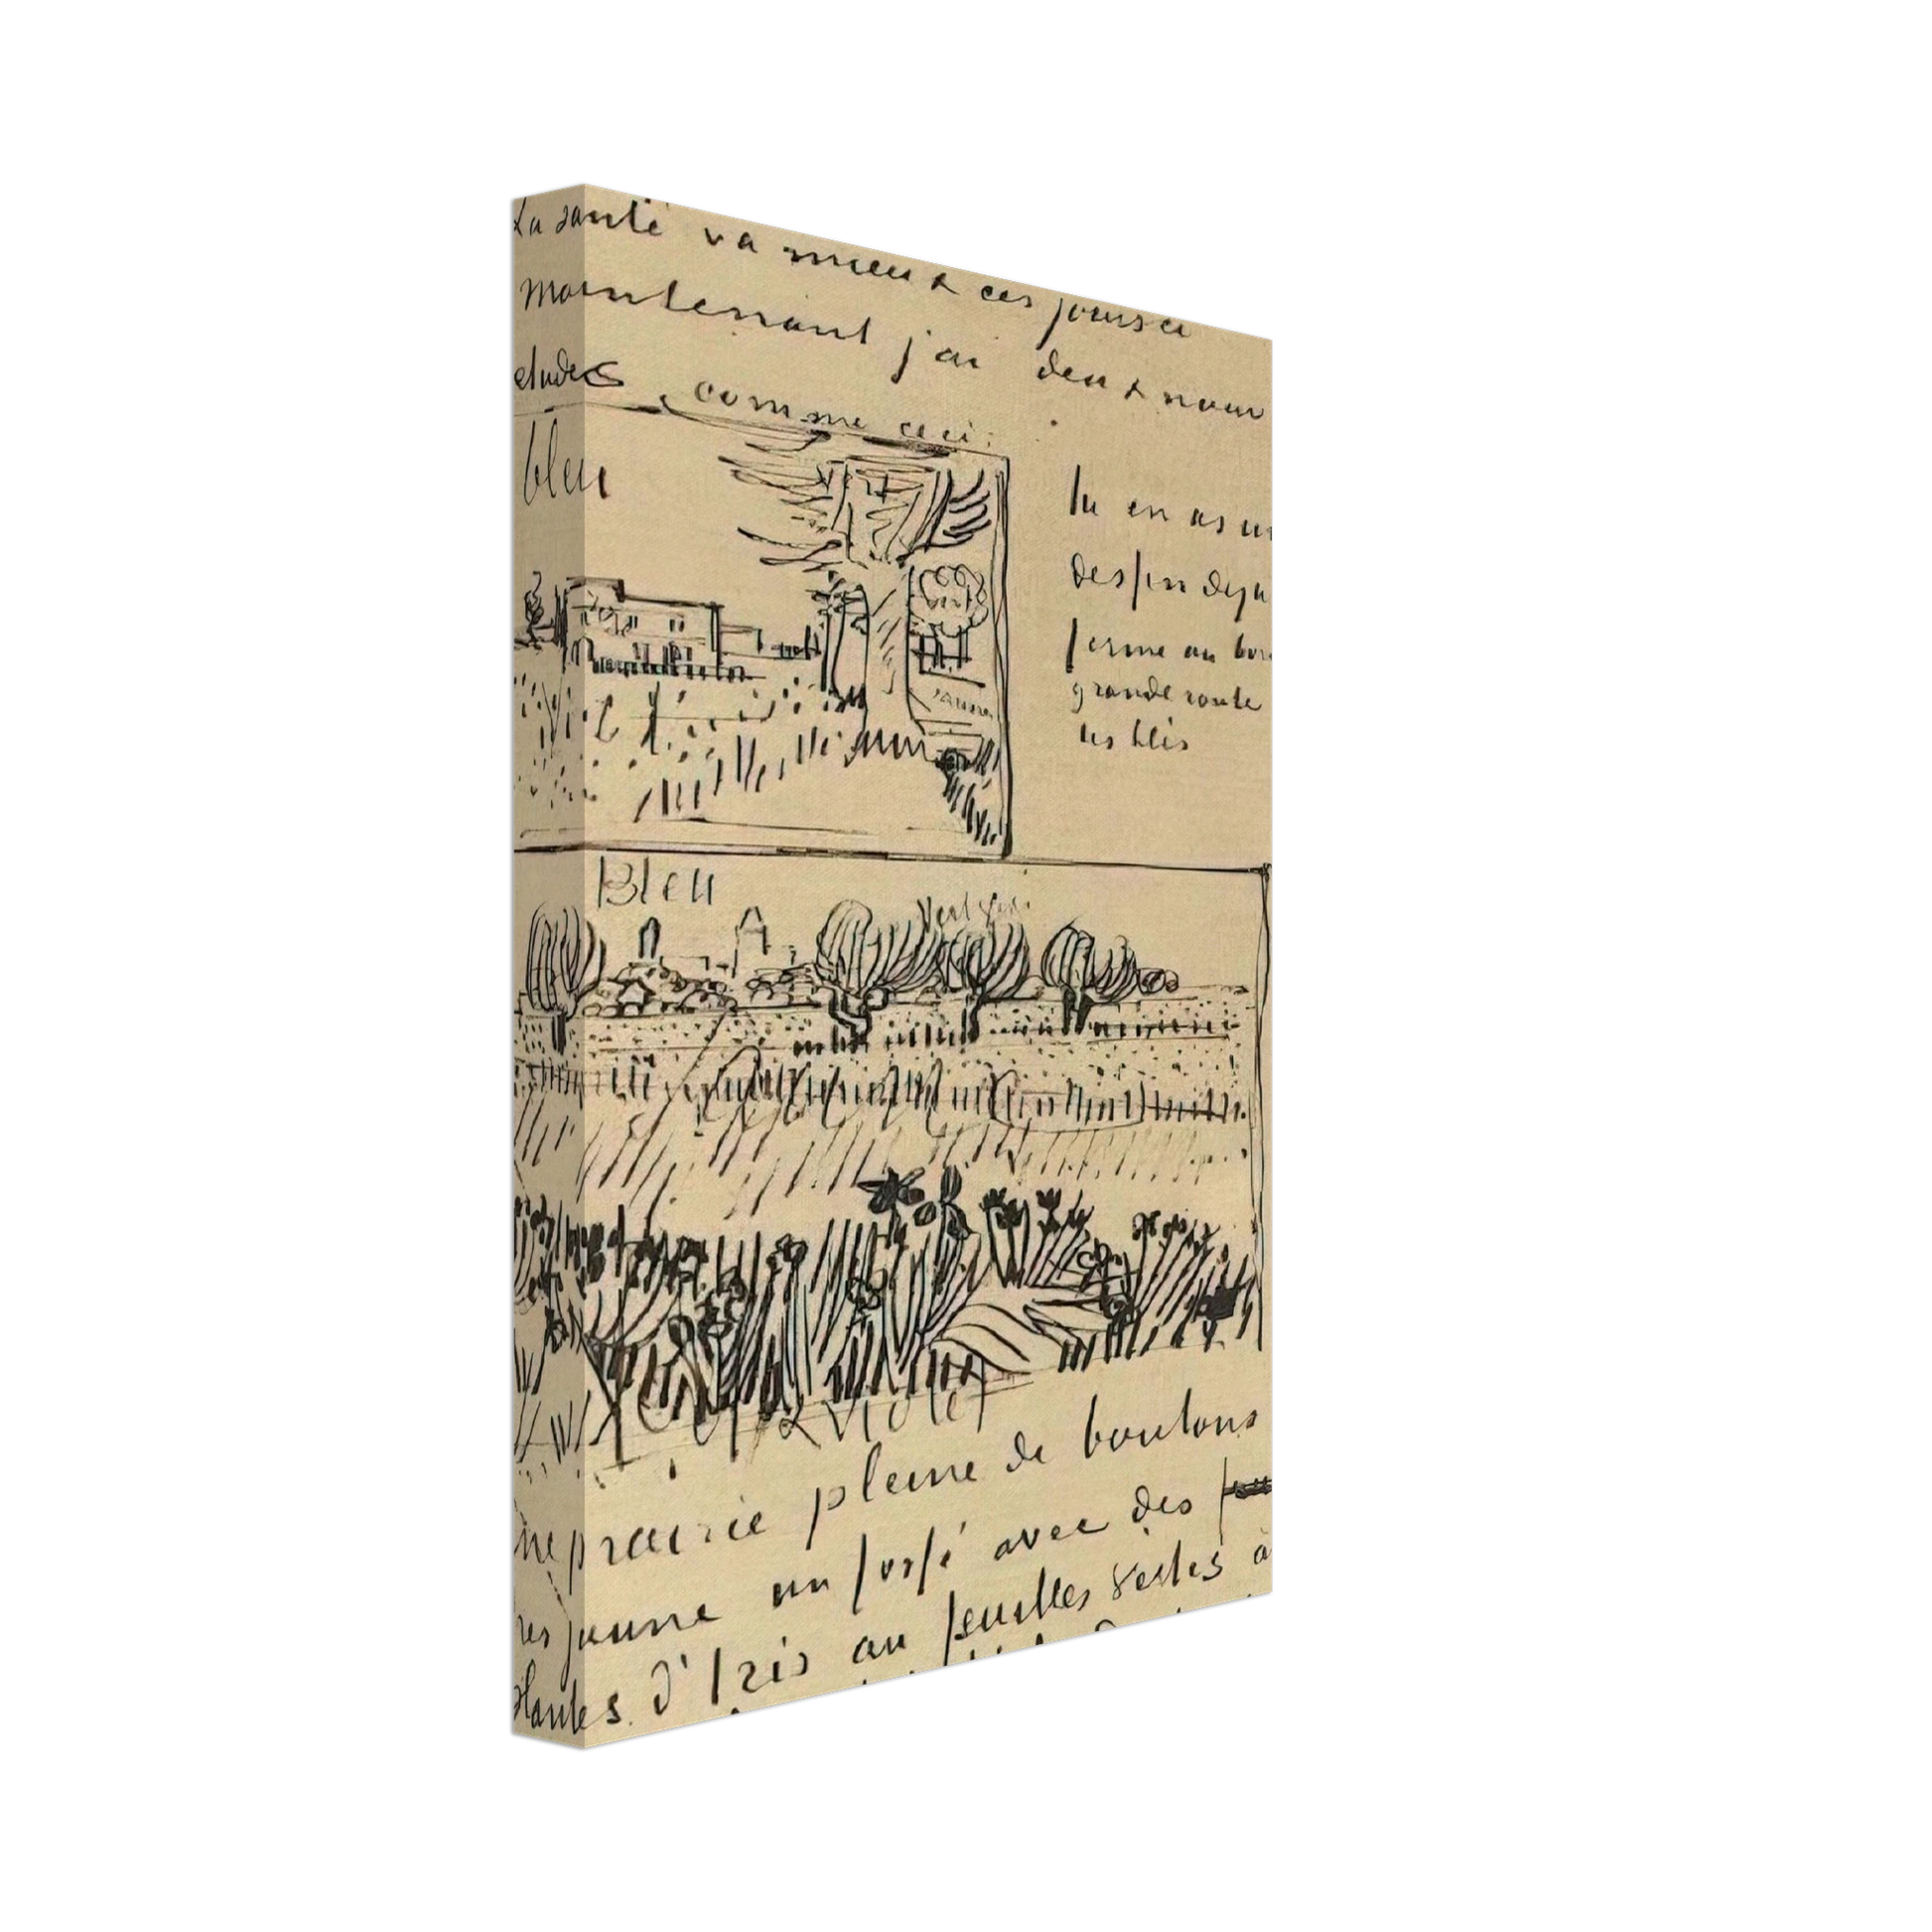 La santé va mieux ces jours ci
maintenant j'ai deux nouv
etudes comme ceci:
bleu
vert
tu en as un
dessin deja
jaune
ferme au bor
grande route
les blés
Bleu
Vert gris
Vert & Violet
ne prairie pleine de boutons
res jaune un fossé avec des
plantes d'Iris au feuilles vertes à